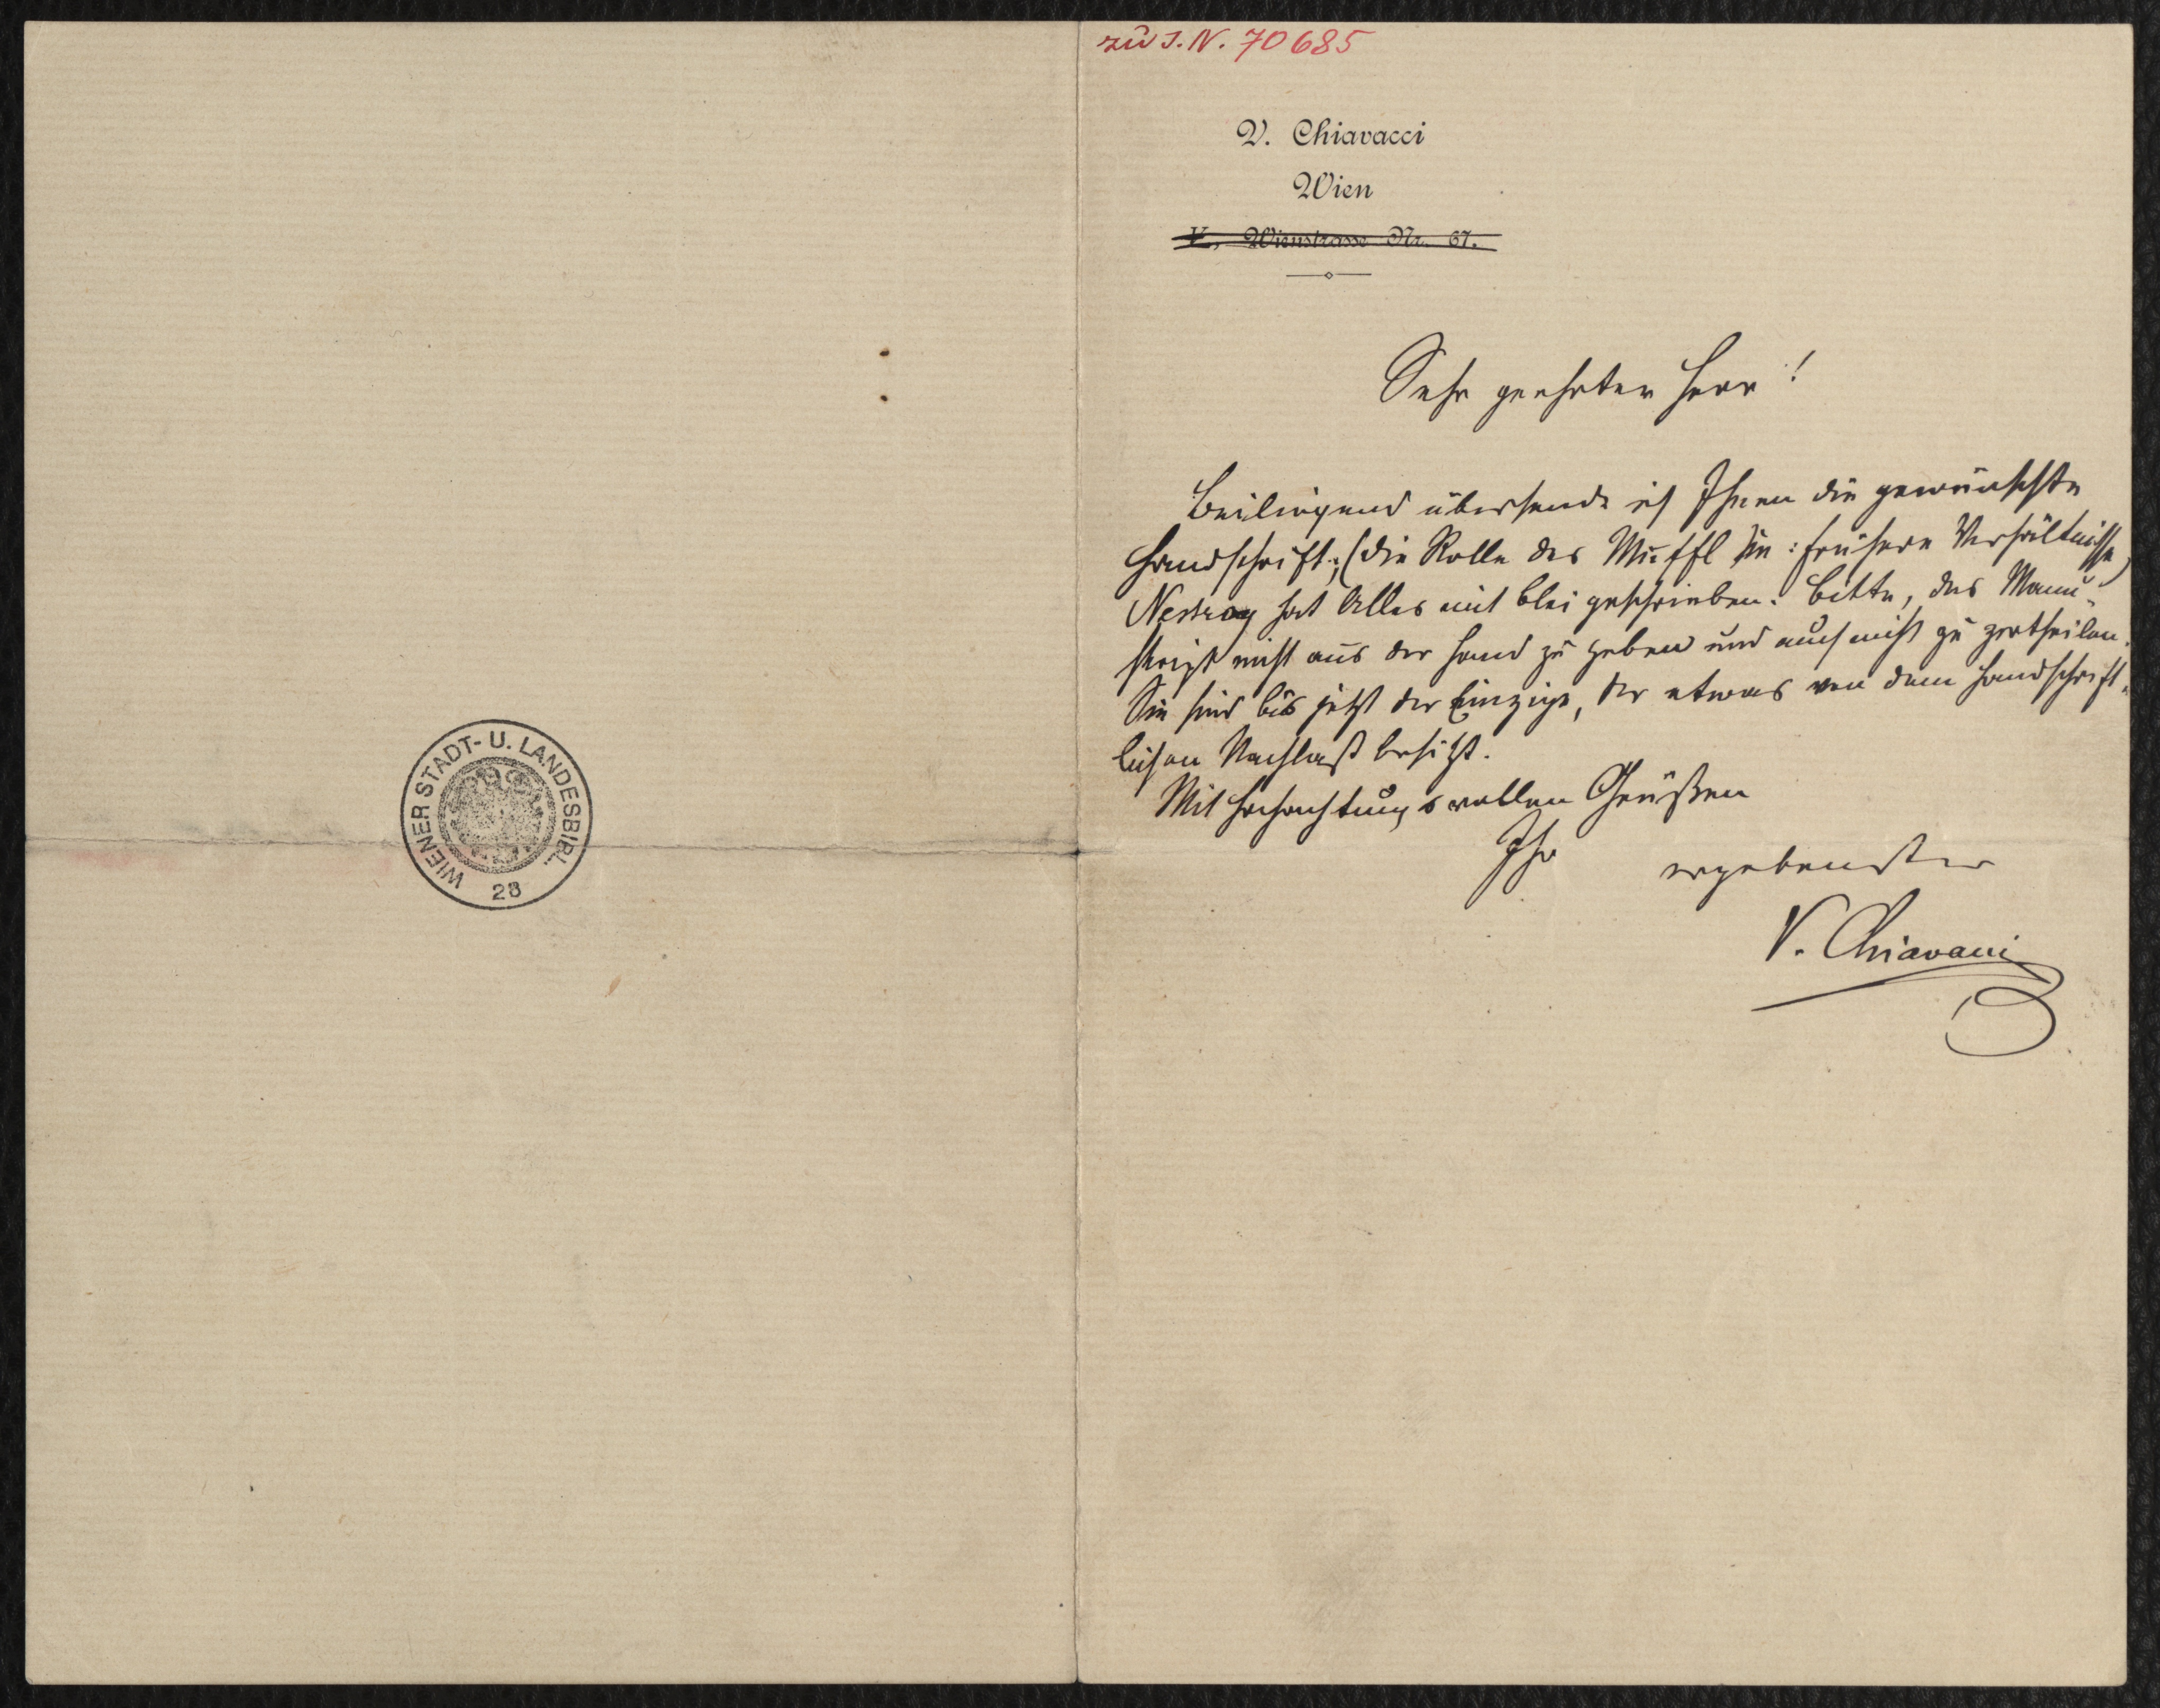 zu I. N. 70685
V. Chiavacci
Wien
V., Wienstrasse Nr. 67.
Sehr geehrter Herr!
Beiliegend übersende ich Ihnen die gewünschte
Handschrift; (die Rolle des Muffl in: frühere Verhältnisse)
Nestroy hat Alles mit Blei geschrieben. Bitte, das Manu-
skript nicht aus der Hand zu geben und auch nicht zu zertheilen.
Sie sind bis jetzt der Einzige, der etwas von dem handschrift-
lichen Nachlaß besitzt.
Mit hochachtungsvollen Grüßen
Ihr ergebenster
V. Chiavacci
WIENER STADT- U. LANDESBIBL.
28